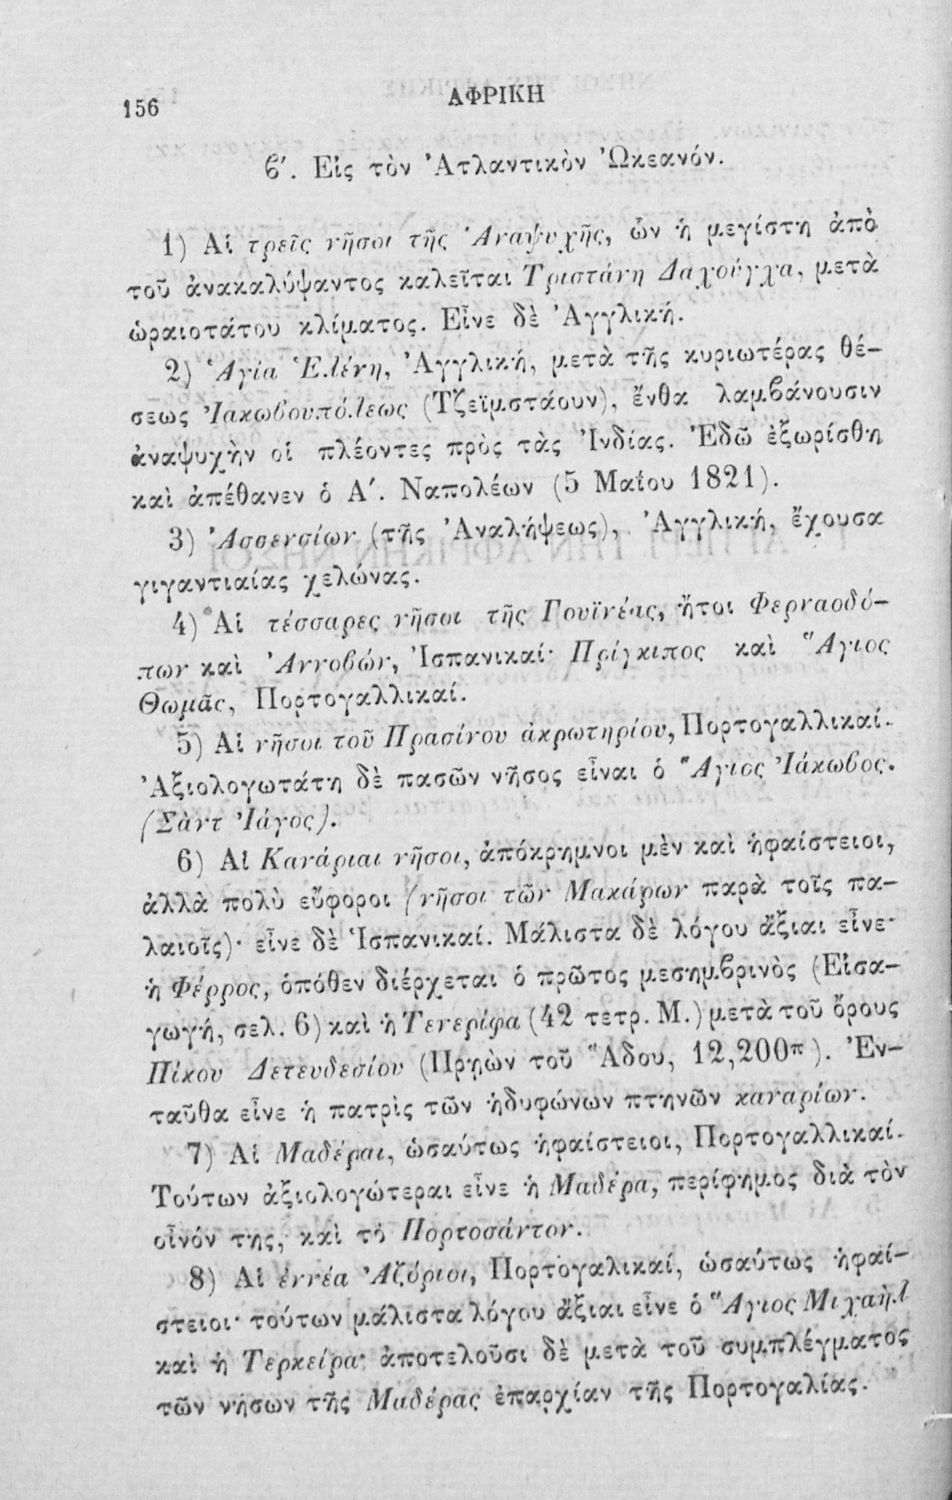 156
ΑΦΡΙΚΗ
ϐ′. Εἰς τὸν Ἀτλαντικὸν Ὠκεανόν.
1) Αἱ τρεῖς νῆσοι τῆς Ἀναψυχῆς, ὧν ἡ μεγίστη ἀπὸ
τοῦ ἀνακαλύψαντος καλεῖται Τριστάνη Δαχούγχα, μετὰ
ὡραιοτάτου κλίματος. Εἶνε δὲ Ἀγγλική.
2) Ἁγία Ἑλένη, Ἀγγλική, μετὰ τῆς κυριωτέρας θέ-
σεως Ἰακωϐουπόλεως (Τζεϊμστάουν), ἔνθα λαμϐάνουσιν
ἀναψυχὴν οἱ πλέοντες πρὸς τὰς Ἰνδίας. Ἐδῶ ἐξωρίσθη
καὶ ἀπέθανεν ὁ Α′. Ναπολέων (5 Μαΐου 1821).
3) Ἀσσενσίων (τῆς Ἀναλήψεως), Ἀγγλική, ἔχουσα
γιγαντιαίας χελώνας.
4) Αἱ τέσσαρες νῆσοι τῆς Γουϊνέας, ἤτοι Φερναοδό-
πων καὶ Ἀννοϐών, Ἱσπανικαί· Πρίγκιπος καὶ Ἅγιος
Θωμᾶς, Πορτογαλλικαί.
5) Αἱ νῆσοι τοῦ Πρασίνου ἀκρωτηρίου, Πορτογαλλικαί.
Ἀξιολογωτάτη δὲ πασῶν νῆσος εἶναι ὁ Ἅγιος Ἰάκωϐος.
(Σὰντ Ἰάγος).
6) Αἱ Κανάριαι νῆσοι, ἀπόκρημνοι μὲν καὶ ἡφαίστειοι,
ἀλλὰ πολὺ εὔφοροι (νῆσοι τῶν Μακάρων παρὰ τοῖς πα-
λαιοῖς)· εἶνε δὲ Ἱσπανικαί. Μάλιστα δὲ λόγου ἄξιαι εἶνε·
ἡ Φέρρος, ὁπόθεν διέρχεται ὁ πρῶτος μεσημϐρινὸς (Εἰσα-
γωγή, σελ. 6) καὶ ἡ Τενερίφα (42 τετρ. Μ.) μετὰ τοῦ ὄρους
Πίκου Δετευδεσίου (Πρηὼν τοῦ Ἅδου, 12,200π). Ἐν-
ταῦθα εἶνε ἡ πατρὶς τῶν ἡδυφώνων πτηνῶν καναρίων.
7) Αἱ Μαδέραι, ὡσαύτως ἡφαίστειοι, Πορτογαλλικαί.
Τούτων ἀξιολογώτεραι εἶνε ἡ Μαδέρα, περίφημος διὰ τὸν
οἶνόν της, καὶ τὸ Πορτοσάντον.
8) Αἱ ἐννέα Ἀζόριοι, Πορτογαλικαί, ὡσαύτως ἡφαί-
στειοι· τούτων μάλιστα λόγου ἄξιαι εἶνε ὁ Ἅγιος Μιχαὴλ
καὶ ἡ Τερκείρα· ἀποτελοῦσι δὲ μετὰ τοῦ συμπλέγματος
τῶν νήσων τῆς Μαδέρας ἐπαρχίαν τῆς Πορτογαλίας.